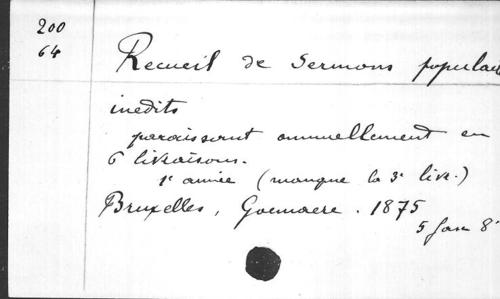 200
64
Recueil de Sermons populai
inedits
paraissant annuellement en
6 livraisons.
1e année (manque la 3e livr.)
Bruxelles, Goemaere. 1875
5 fasc 8°